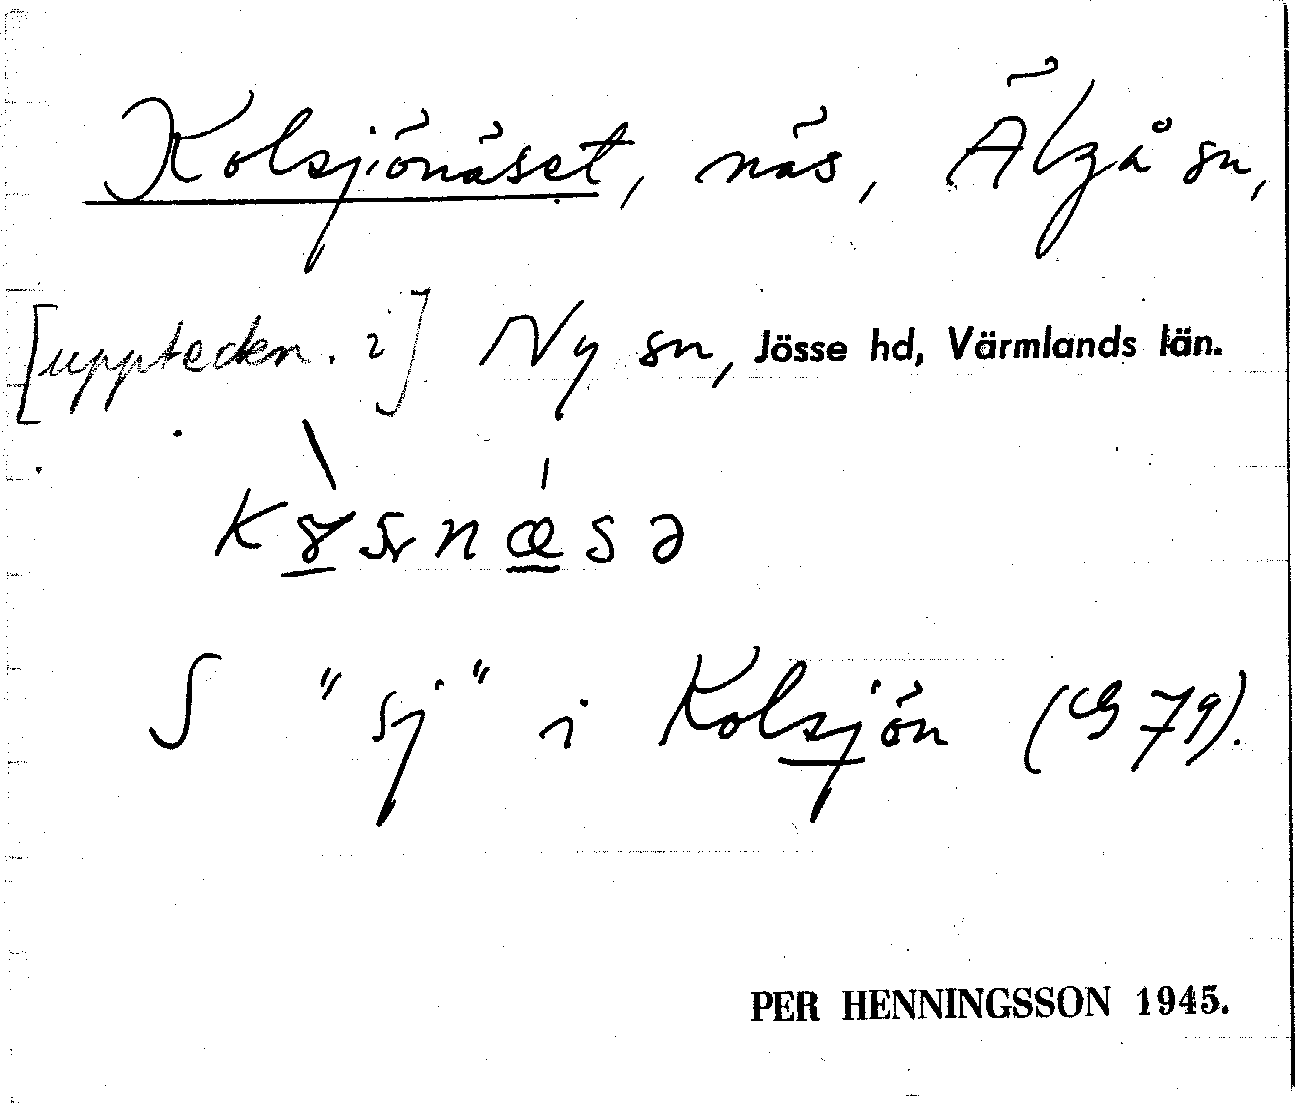 Kolsjönäset, näs, Älgå sn,
[uppteckn. i] Ny sn, Jösse hd, Värmlands län.
S "sj" i Kolsjön (G 79).
PER HENNINGSSON 1945.